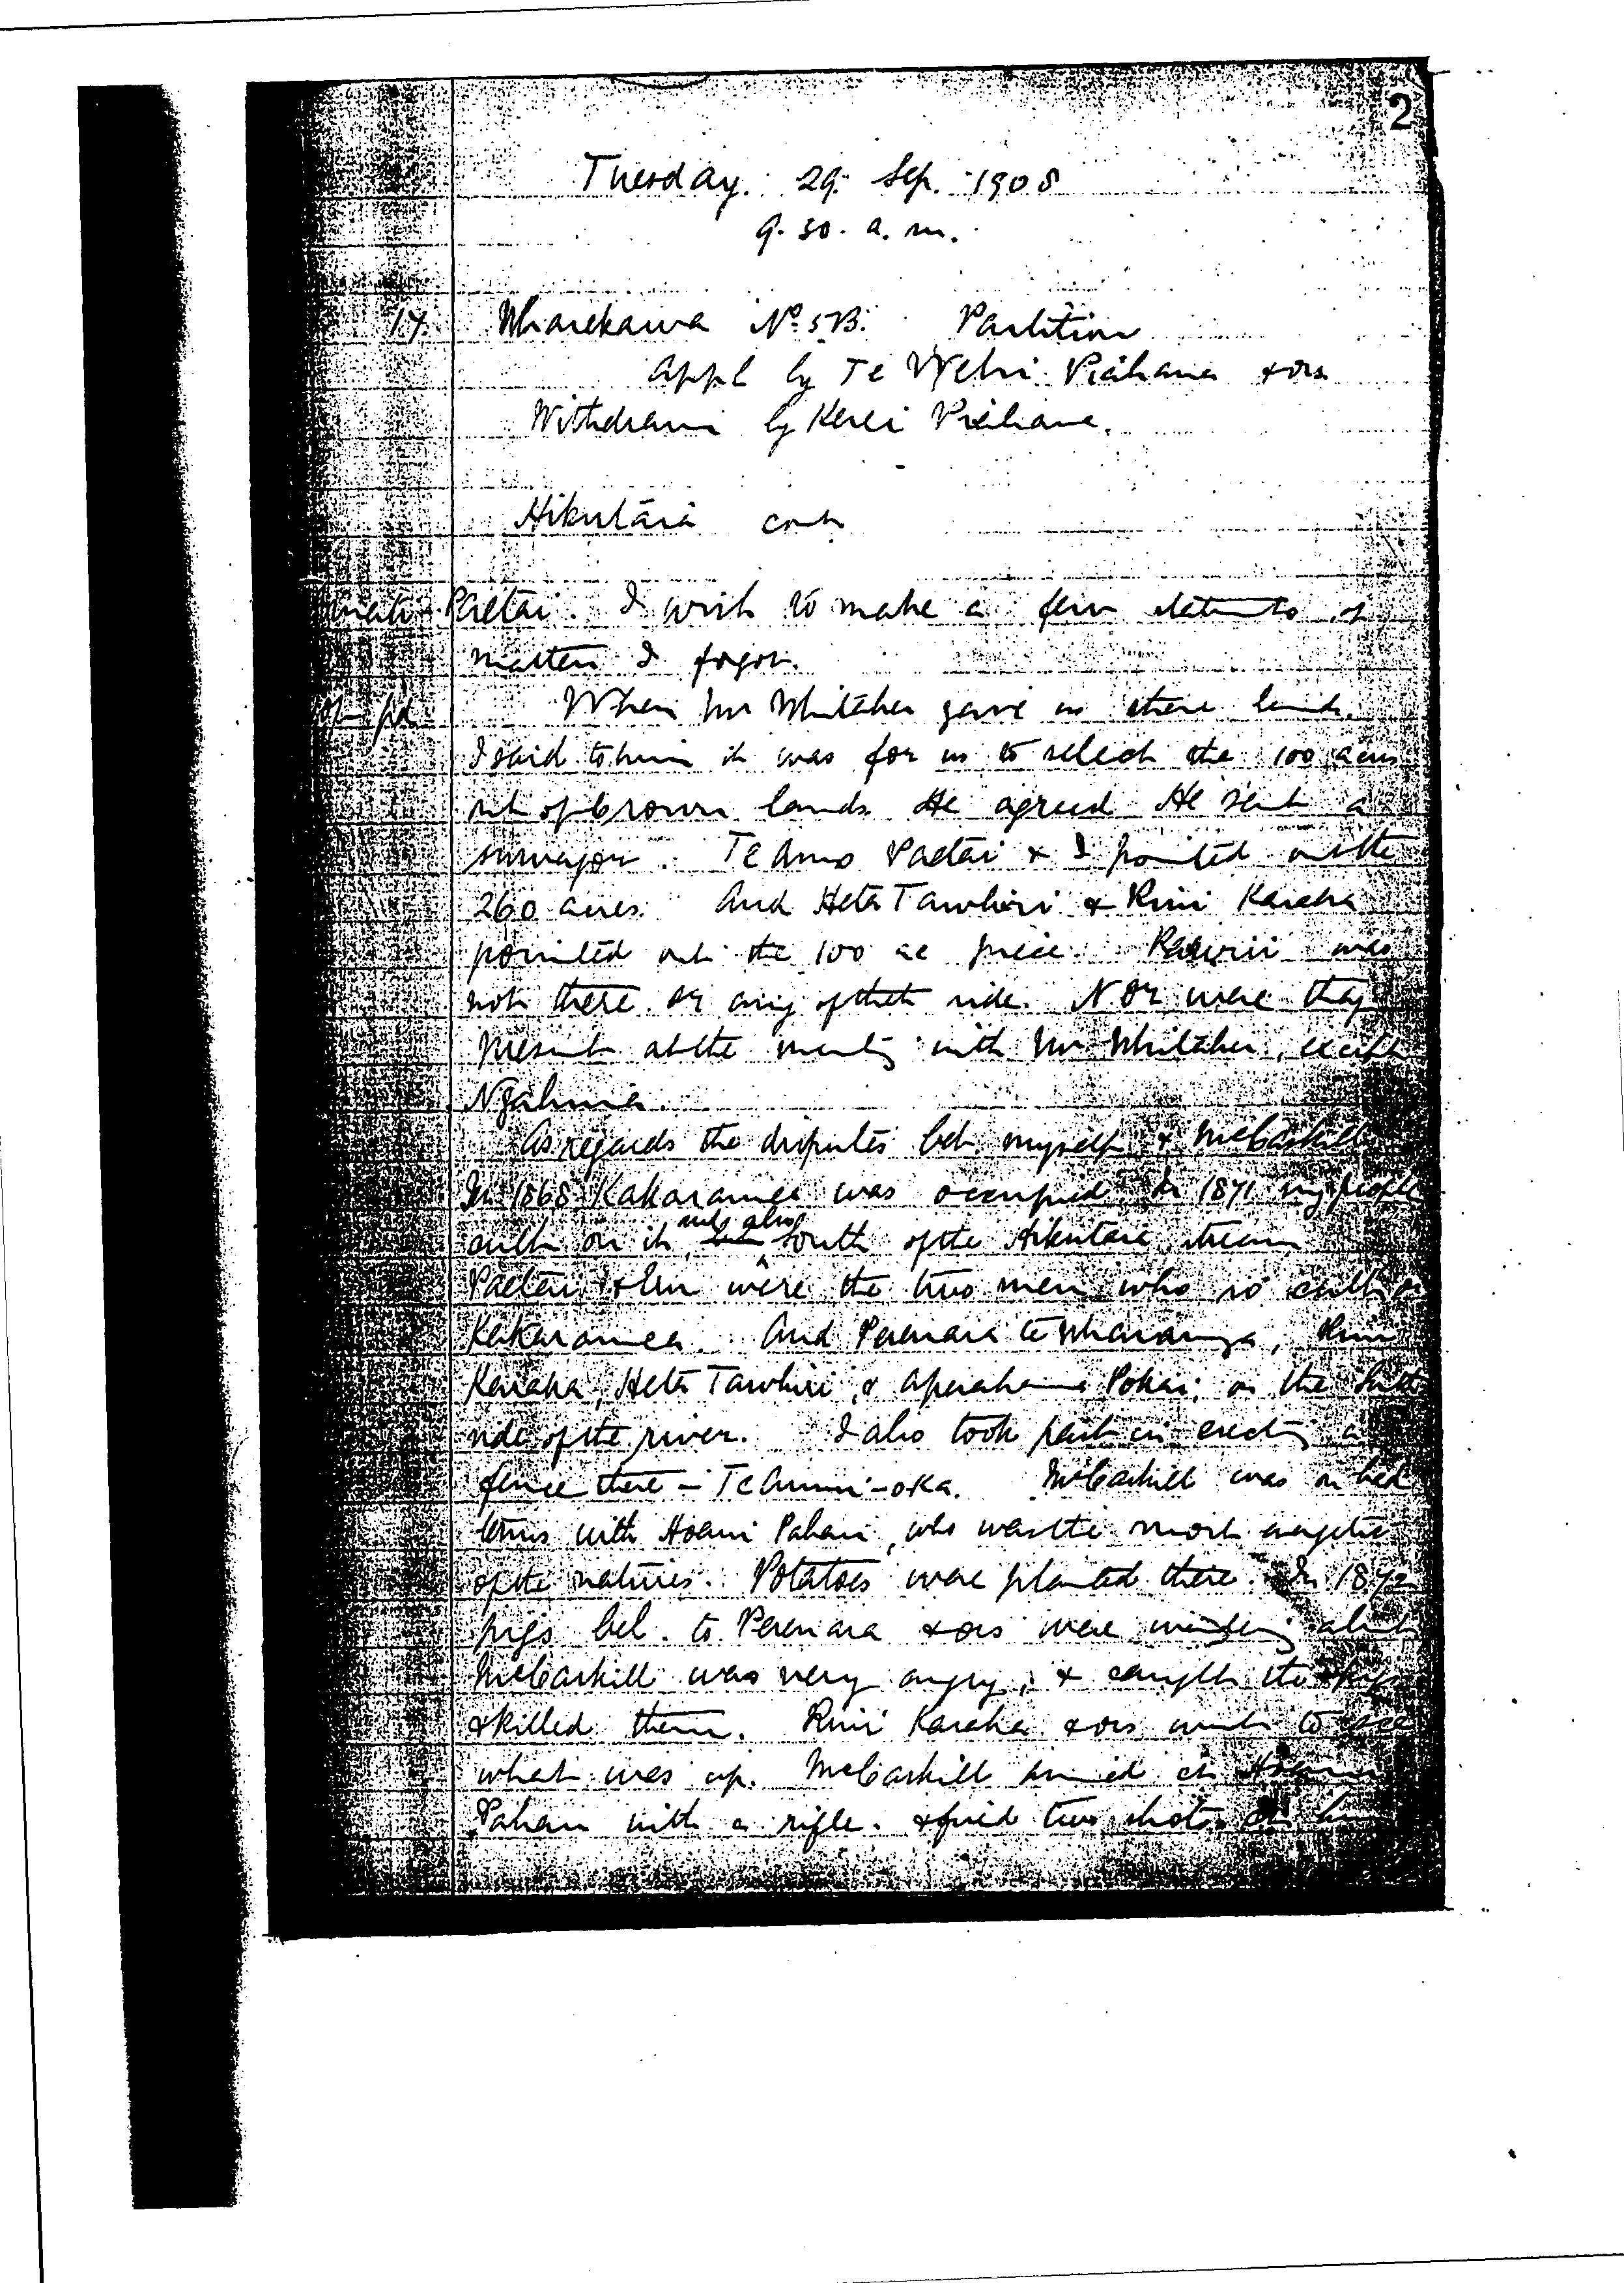 2
Tuesday. 29. Sep. 1908
9.30. a.m.
17. Wharekawa No. 5B. Partition
Appl by Te Wehi Piahana & ors
Withdrawn by Kerei Piahana.
Hikutaia cont
Paetai. I wish to make a few of
matters I forgot.
When Mr Whitaker gave us these lands.
I said to him it was for us to select the 100 acres
out of crown lands. He agreed. He sent a
surveyor. Te Amo Paetai & I pointed out the
260 acres. And Heta Tawhiri & Rini Karaha
pointed out the 100 ac piece. Rawiri was
not there or any of that side. Nor were they
present at the meeting with Mr Whitaker, except
Ngahuia.
As regards the disputes bet. myself & McCaskill
In 1868 Kakaramea was occupied. In 1871 my people
cult on it, and also south of the Hikutaia stream
Paetai were the two men who so cult on
Kakaramea. And Perenara te Wharanga, Rini
Karaha, Heta Tawhiri, & Aperahama Pokai, on the
side of the river. I also took part in erecting a
fence there — McCaskill was on bad
terms with Hoani Pahau, who was the most energetic
of the natives. Potatoes were planted there. In 1872
pigs bel. to Perenara & ors were wandering about
McCaskill was very angry, & caught the pigs
& killed them. Rini Karaha & ors went to see
what was up. McCaskill aimed at Hoani
Pahau with a rifle. & fired two shots at him